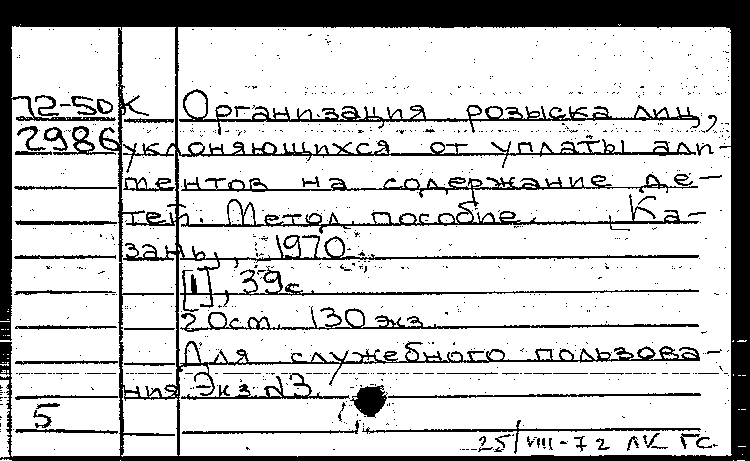 72-50К Организация розыска лиц,
2986 уклоняющихся от уплаты али-
ментов на содержание де-
тей. Метод. пособие. Ка-
зань, 1970.
[1], 39с.
20ст. 130 экз.
Для служебного пользова-
ния. Экз. N3.
5
25/VIII-72 ЛК ГС